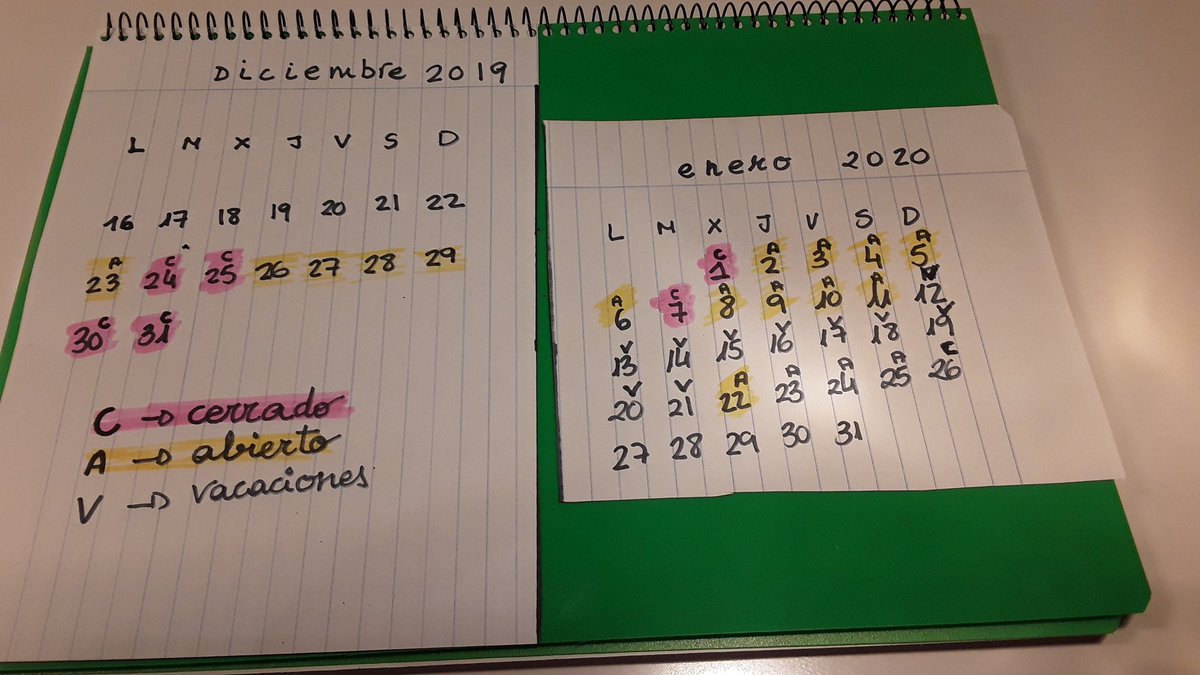 Diciembre 2019
L M X J V S D
16 17 18 19 20 21 22
A C C
23 24 25 26 27 28 29
C C
30 31
C → cerrado
A → abierto
V → vacaciones
enero 2020
L M X J V S D
C A A A A
1 2 3 4 5
A C A A A A V
6 7 8 9 10 11 12
V V V V V V V
13 14 15 16 17 18 19
V V A A A A C
20 21 22 23 24 25 26
27 28 29 30 31